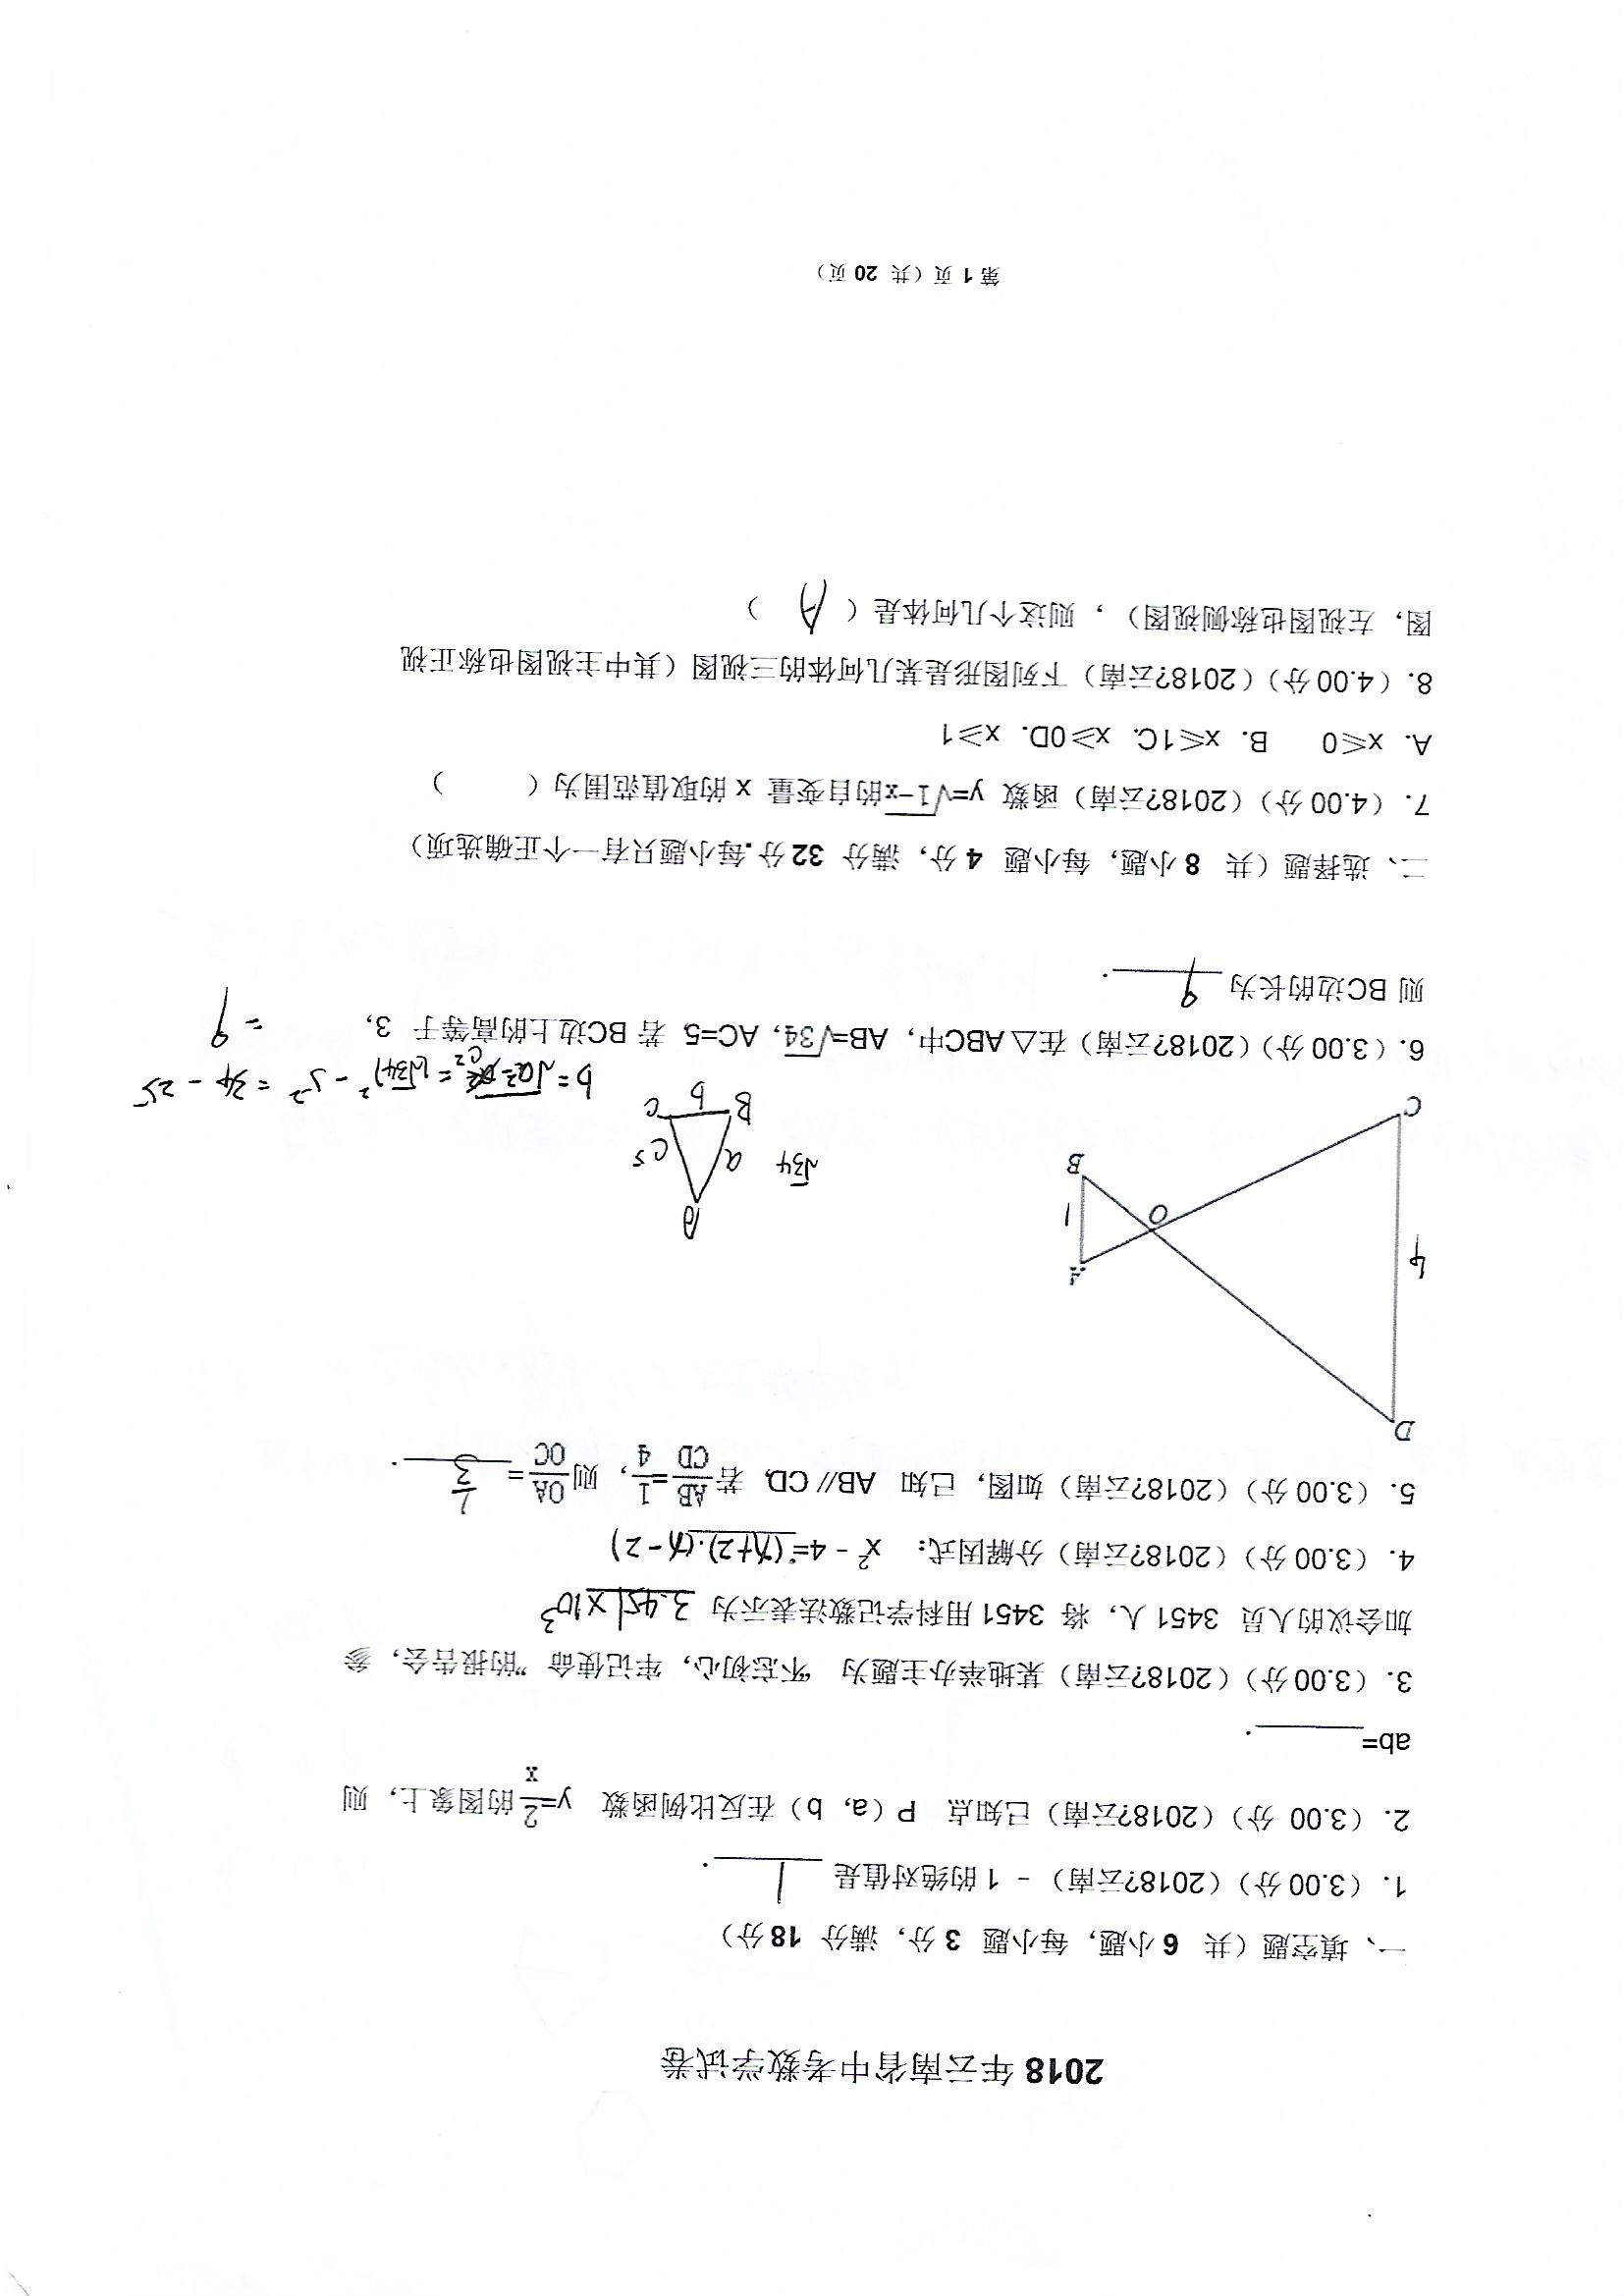 2018 年云南省中考数学试卷
一、填空题（共 6 小题，每小题 3 分，满分 18 分）
1.（3.00 分）（2018?云南）﹣1 的绝对值是 1 .
2.（3.00 分）（2018?云南）已知点 P（a，b）在反比例函数 y=2/x的图象上，则
ab= .
3.（3.00 分）（2018?云南）某地举办主题为 “不忘初心，牢记使命 ”的报告会，参
加会议的人员 3451 人，将 3451 用科学记数法表示为 3.451×10³
4.（3.00 分）（2018?云南）分解因式： x²﹣4=(x+2)·(x-2)
5.（3.00 分）（2018?云南）如图，已知 AB//CD，若AB/CD=1/4，则OA/OC= 1/3 .
D
4
A
O
1
B
C
A
√34 a c 5
B b C
b= = (√34)² - 5² = 34 - 25
= 9
6.（3.00 分）（2018?云南）在△ABC中，AB=√34，AC=5，若 BC边上的高等于 3，
则 BC边的长为 9 .
二、选择题（共 8 小题，每小题 4 分，满分 32 分.每小题只有一个正确选项）
7.（4.00 分）（2018?云南）函数 y=√1-x的自变量 x 的取值范围为（ ）
A. x≤0 B. x≤1C. x≥0D. x≥1
8.（4.00 分）（2018?云南）下列图形是某几何体的三视图（其中主视图也称正视
图，左视图也称侧视图），则这个几何体是（ A ）
第 1 页（共 20 页）